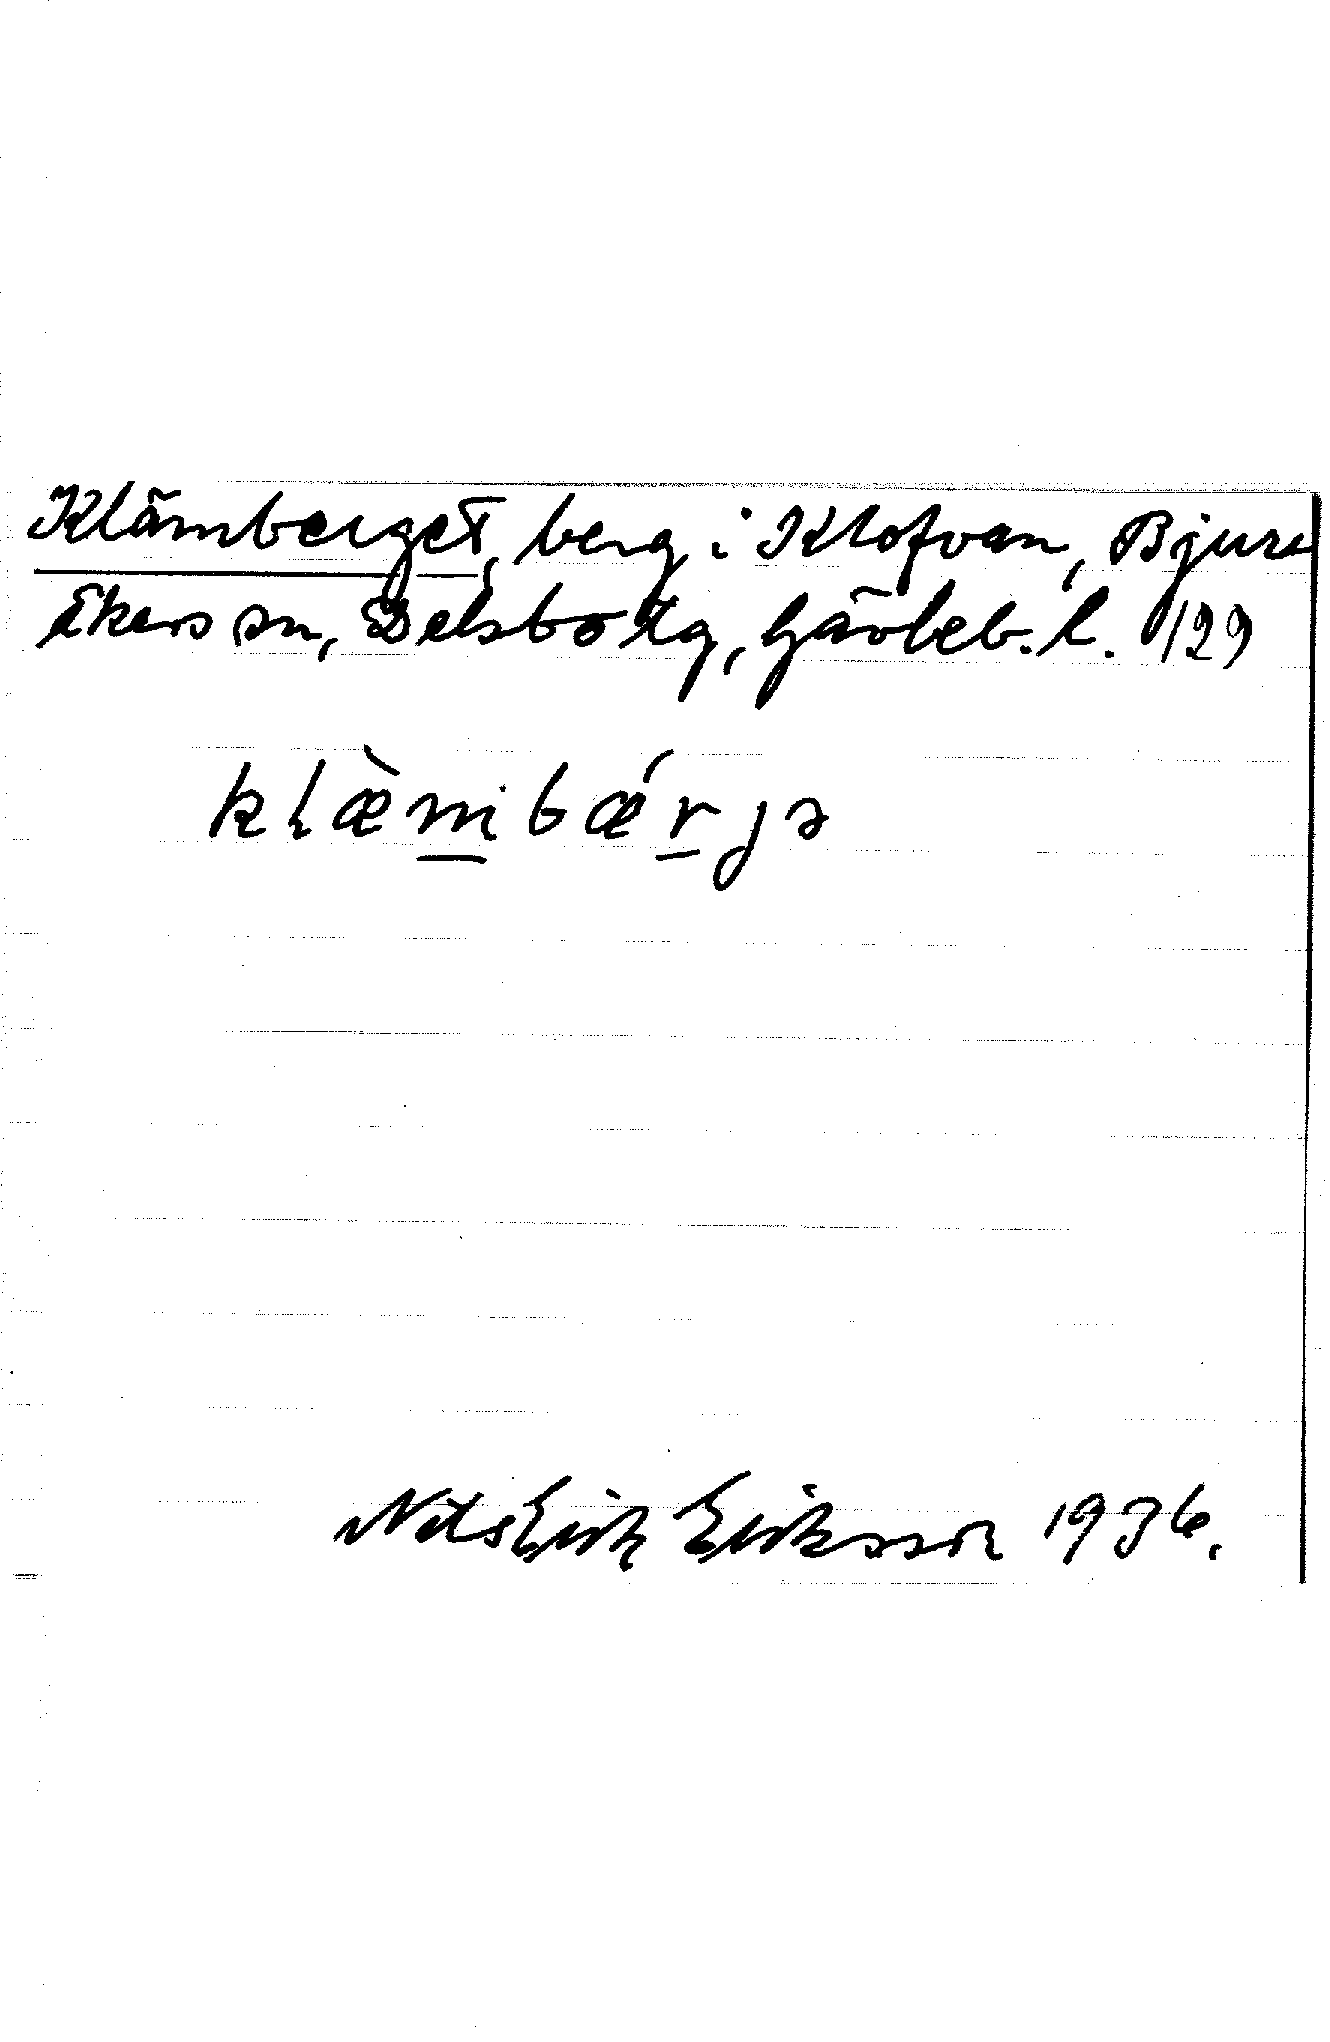 Klämberget, berg i Klofvan, Bjurå
kers sn, Delsbo tg, Gävleb. l. 129
klæ̀mbǽrjə
Nils Erik Eriksson 1936.